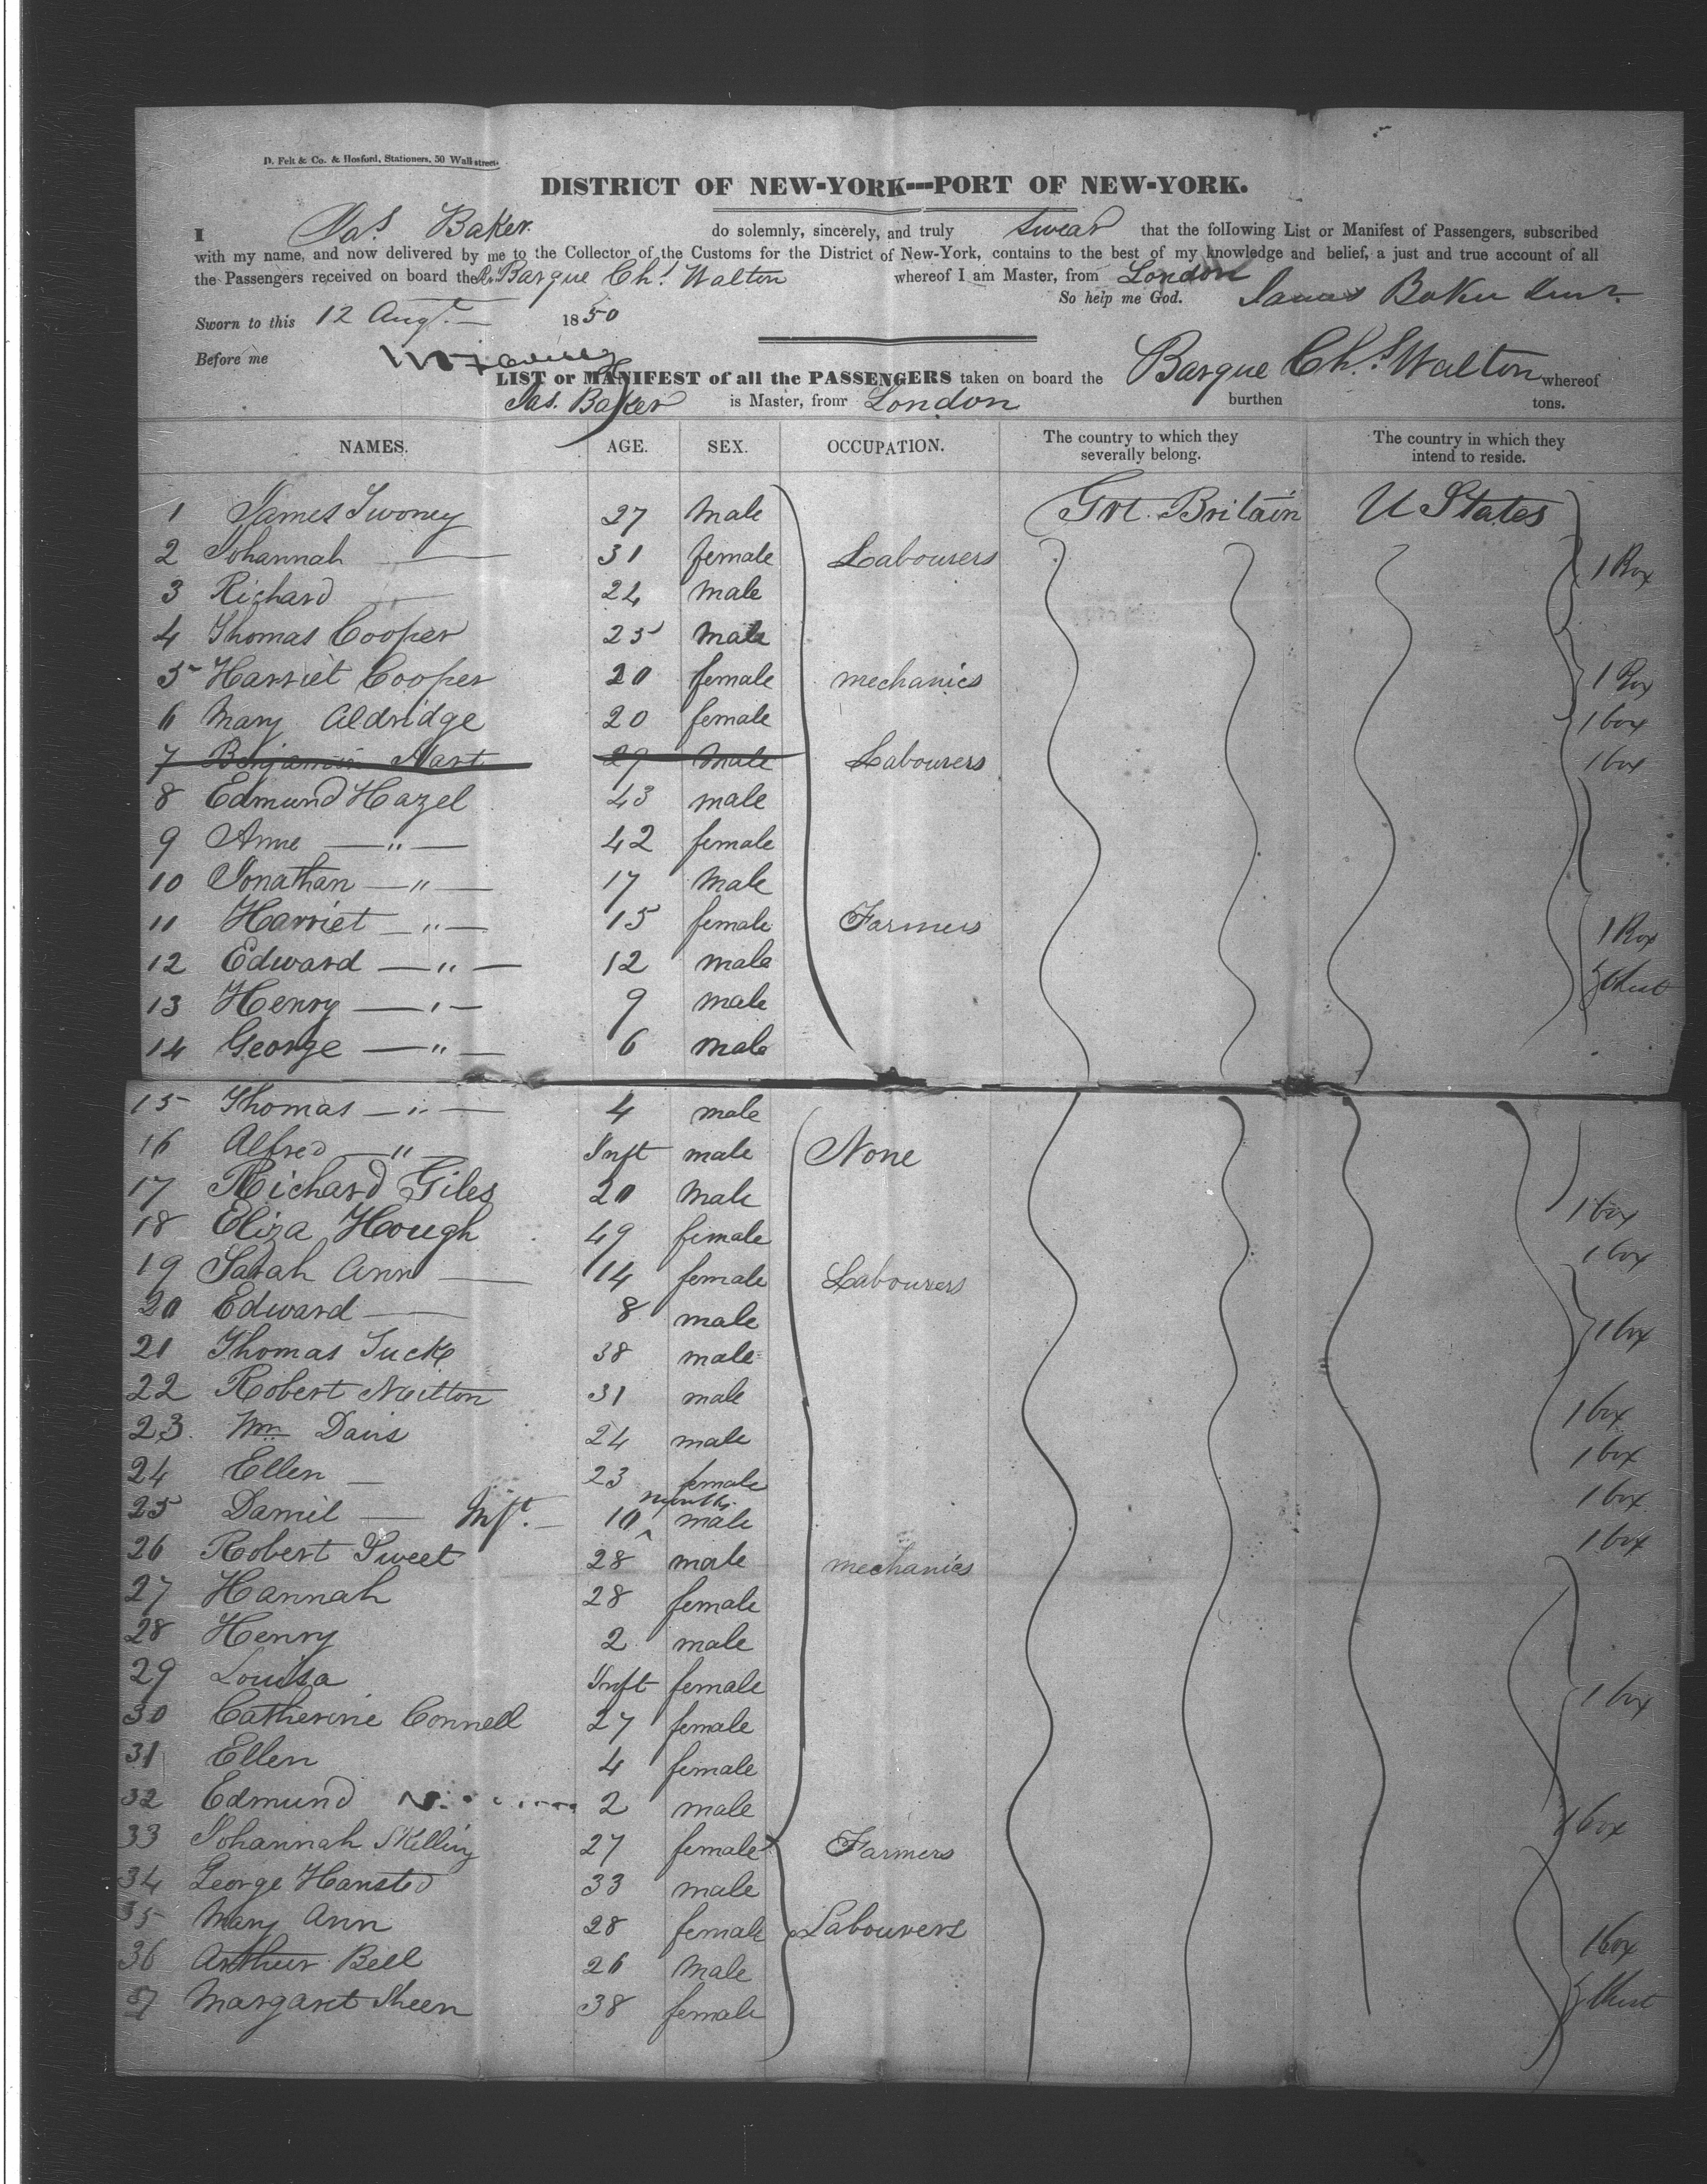 D. Felt & Co. & Hosford, Stationers, 50 Wall street.
DISTRICT OF NEW-YORK---PORT OF NEW-YORK.
I Jas. Baker. do solemnly, sincerely, and truly swear that the following List or Manifest of Passengers, subscribed
with my name, and now delivered by me to the Collector of the Customs for the District of New-York, contains to the best of my knowledge and belief, a just and true account of all
the Passengers received on board the Br. Barque Chs. Walton whereof I am Master, from London
So help me God. James Baker
Sworn to this 12 Augt. 1850
Before me
LIST or MANIFEST of all the PASSENGERS taken on board the Barque Chs. Walton whereof
Jas. Baker is Master, from London burthen tons.
NAMES. AGE. SEX. OCCUPATION. The country to which they severally belong. The country in which they intend to reside.
1 James Twoney 27 Male Grt. Britain U States
2 Johannah — 31 female Labourers 1 Box
3 Richard — 24 Male
4 Thomas Cooper 25 Male
5 Harriet Cooper 20 female mechanics 1 Box
6 Mary Aldridge 20 female 1 box
7 Benjamin Hart 29 Male Labourers 1 box
8 Edmund Hazel 43 male
9 Anne — " — 42 female
10 Jonathan — " — 17 Male
11 Harriet — " — 15 female Farmers 1 Box
12 Edward — " — 12 male & Chest
13 Henry — " — 9 male
14 George — " — 6 male
15 Thomas — " — 4 male
16 Alfred — " — Inft male None
17 Richard Giles 20 Male 1 box
18 Eliza Hough 49 female 1 box
19 Sarah Ann — 14 female Labourers
20 Edward — 8 male 1 box
21 Thomas Tuck 38 male
22 Robert Naitton 31 male 1 box
23. Wm Davis 24 male 1 box
24 Ellen — 23 female 1 box
25 Daniel — Inft. — 10 months male 1 box
26 Robert Sweet 28 male mechanics
27 Hannah 28 female
28 Henry 2 male
29 Louisa Inft female 1 box
30 Catherine Connell 27 female
31 Ellen 4 female
32 Edmund 2 male 1 box
33 Johannah Skelling 27 female Farmers
34 George Hansted 33 male
35 Mary Ann 28 female Labourers 1 box
36 Arthur Bell 26 Male
37 Margaret Sheen 38 female & Chest